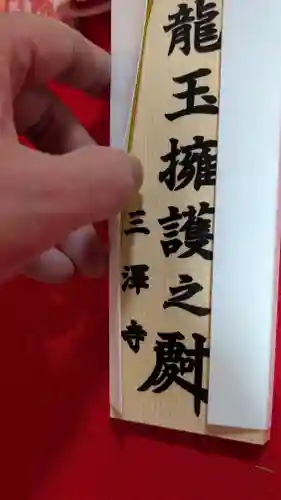 龍玉擁護之尉
三澤寺